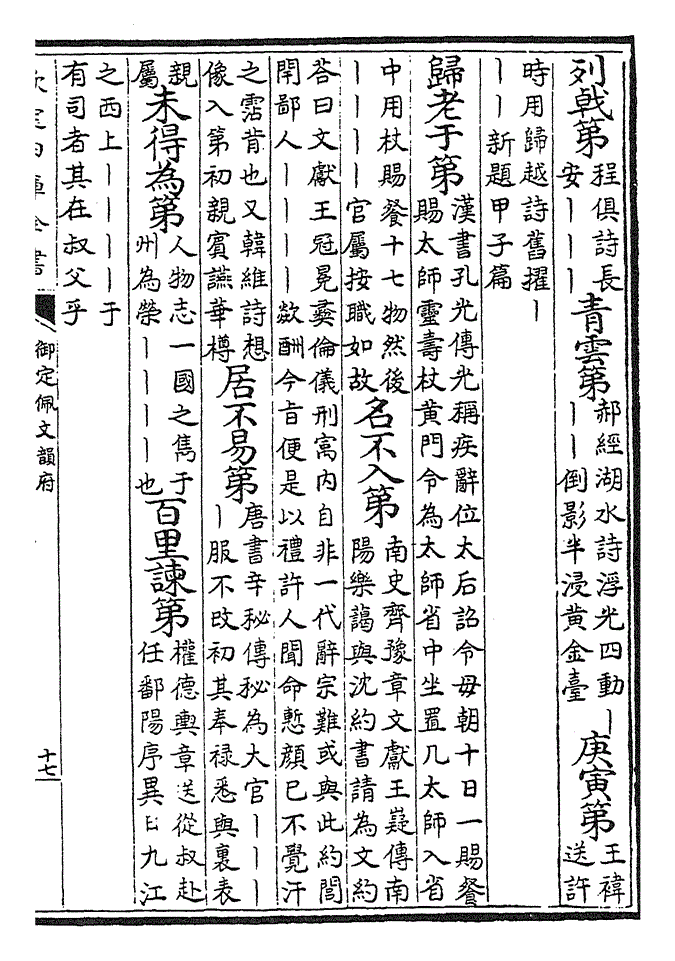 列戟第
程俱詩長
安｜｜｜
青雲第
郝經湖水詩浮光四動｜
｜｜倒影半浸黃金臺
庚寅第
王禕
送許
時用歸越詩舊擢｜
｜｜新題甲子篇
歸老于第
漢書孔光傳光稱疾辭位太后詔令毋朝十日一賜餐
賜太師靈壽杖黃門令為太師省中坐置几太師入省
中用杖賜餐十七物然後
｜｜｜｜官屬按職如故
名不入第
南史齊豫章文獻王嶷傳南
陽樂藹與沈約書請為文約
荅曰文獻王冠冕彞倫儀刑寓内自非一代辭宗難或與此約閭
閈鄙人｜｜｜｜欻酬今旨便是以禮許人聞命慙顔已不覺汗
之霑背也又韓維詩想
像入第初親賓讌華樽
居不易第
唐書辛秘傳秘為大官｜｜｜
｜服不改初其奉禄悉與裏表
親
屬
未得為第
人物志一國之雋于
州為榮｜｜｜｜也
百里諫第
權德輿章送從叔赴
任鄱陽序異日九江
之西上｜｜｜｜于
有司者其在叔父乎
欽定四庫全書
御定佩文韻府
十七